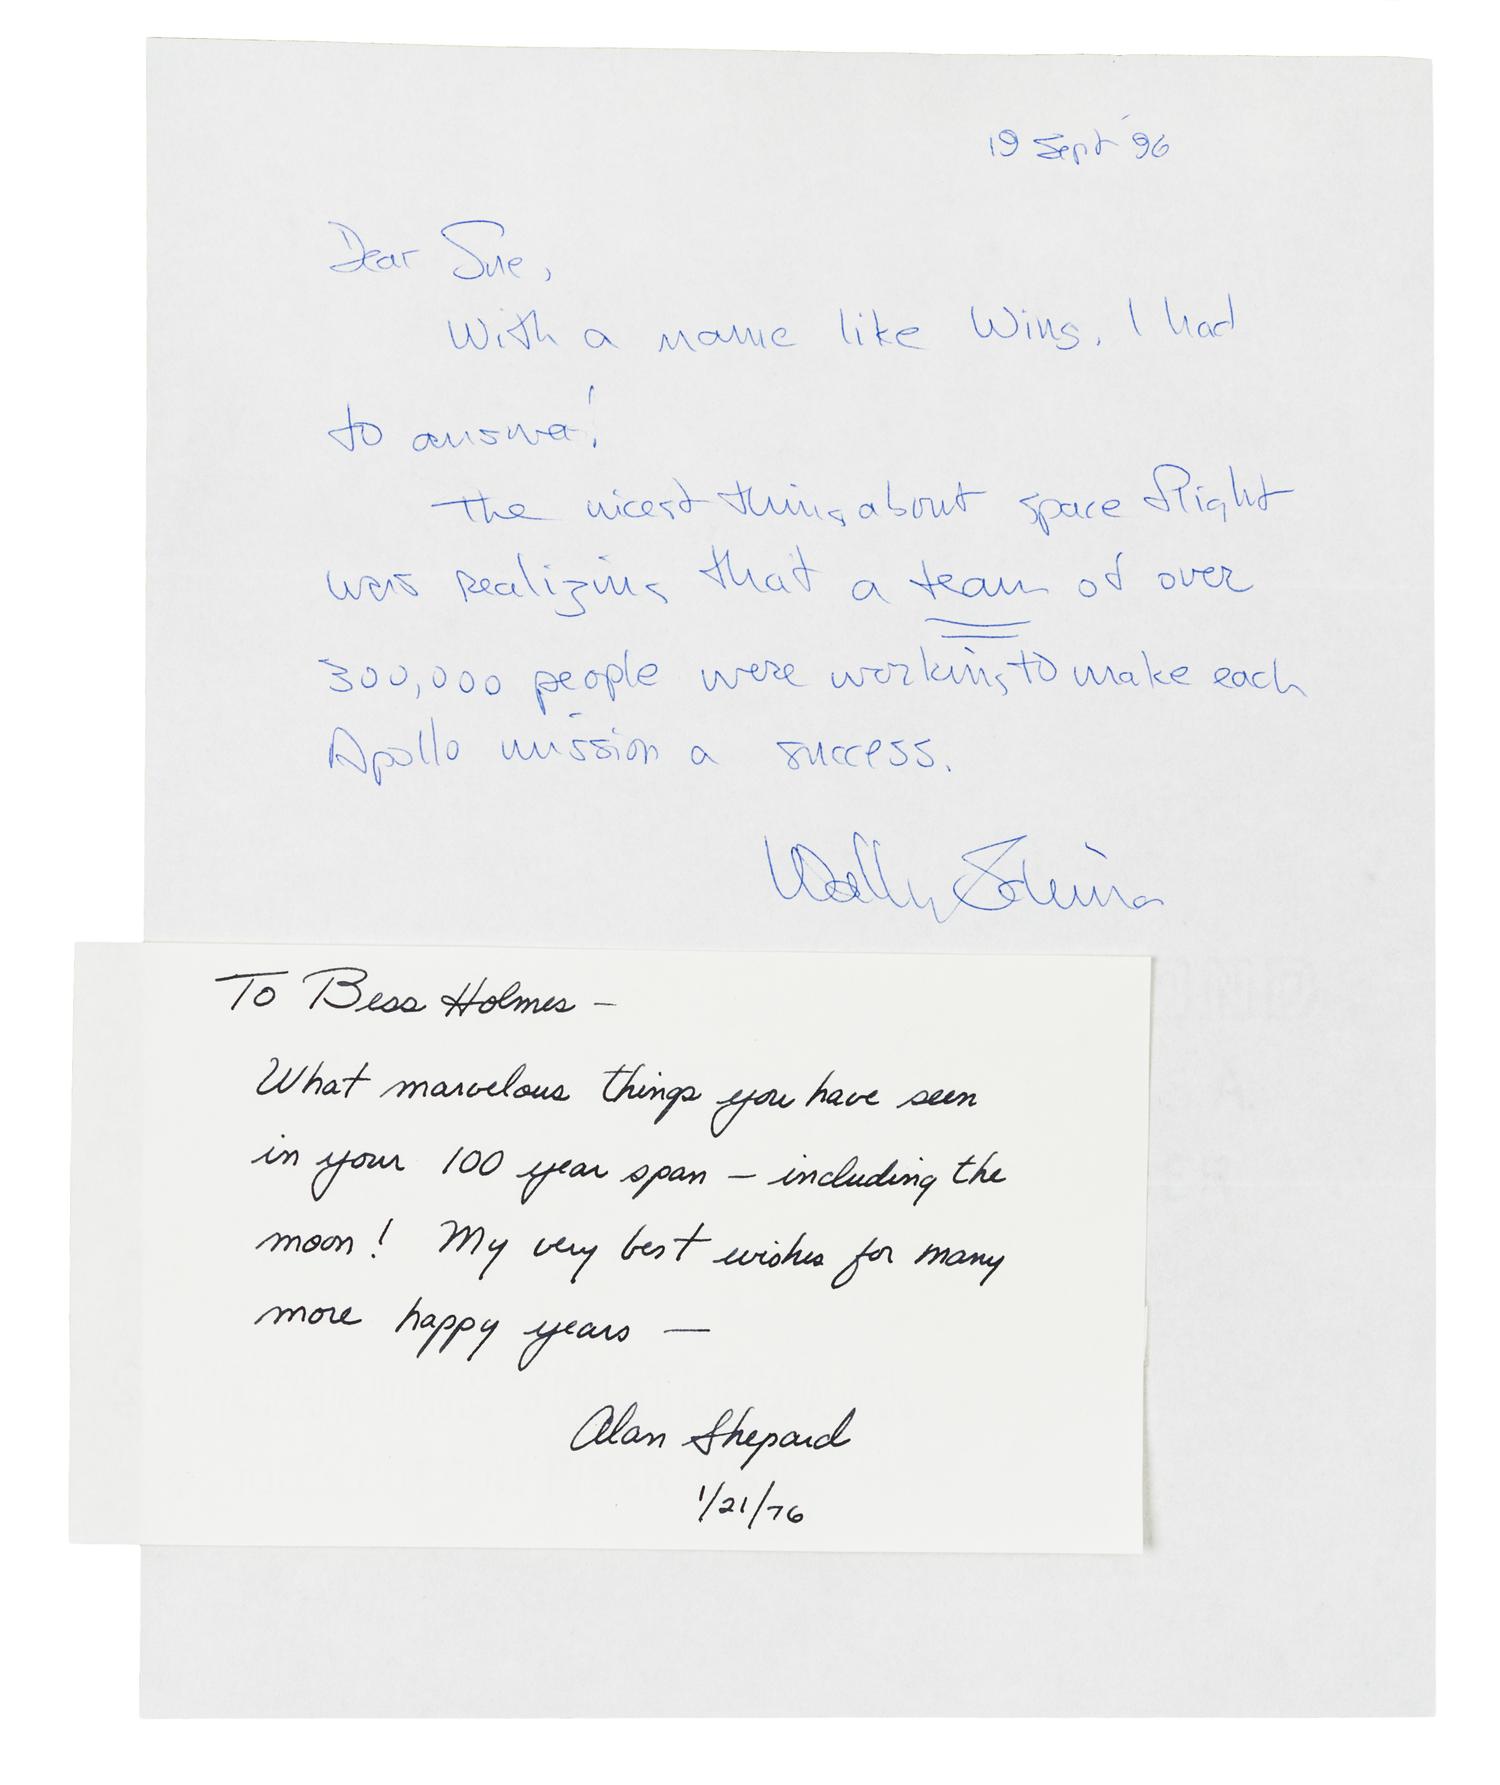 19 Sept '96
Dear Sue,
With a name like Wing, I had
to answer!
The nicest thing about space flight
was realizing that a team of over
300,000 people were working to make each
Apollo mission a success.
Wally Schirra
To Bess Holmes —
What marvelous things you have seen
in your 100 year span — including the
moon! My very best wishes for many
more happy years —
Alan Shepard
1/21/76